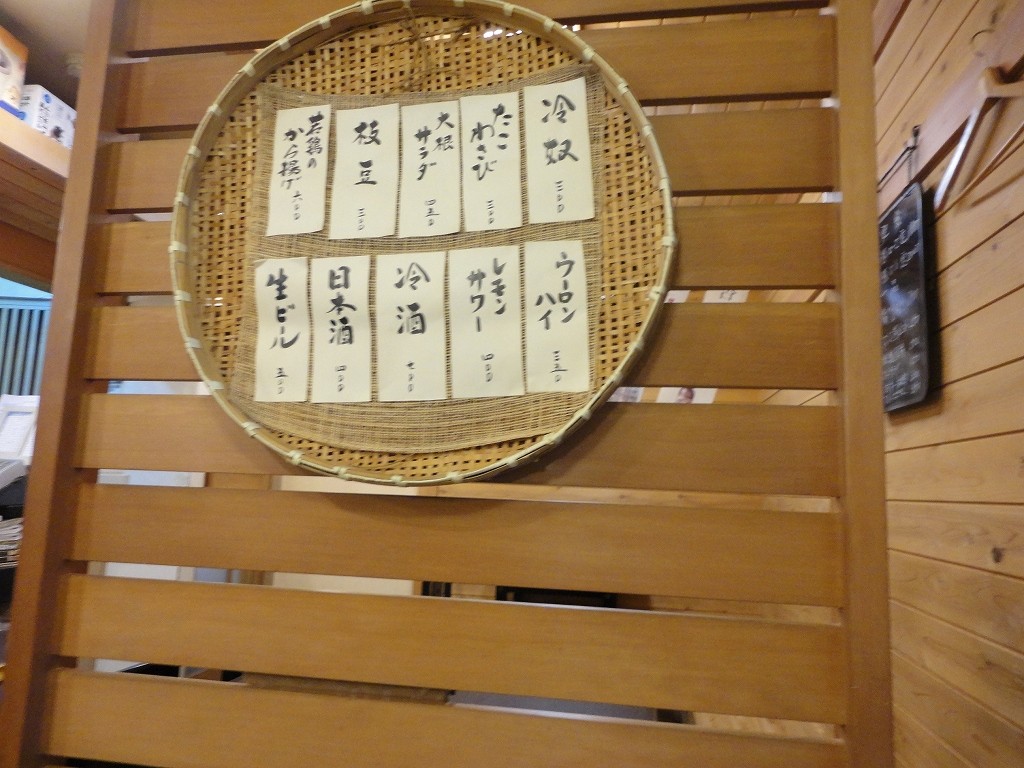 冷奴 三〇〇
たこ
わさび 三〇〇
大根
サラダ 四五〇
枝豆 三〇〇
若鶏の
から揚げ 六〇〇
ウーロン
ハイ 三五〇
レモン
サワー 四〇〇
冷酒 七〇〇
日本酒 四〇〇
生ビール 五〇〇